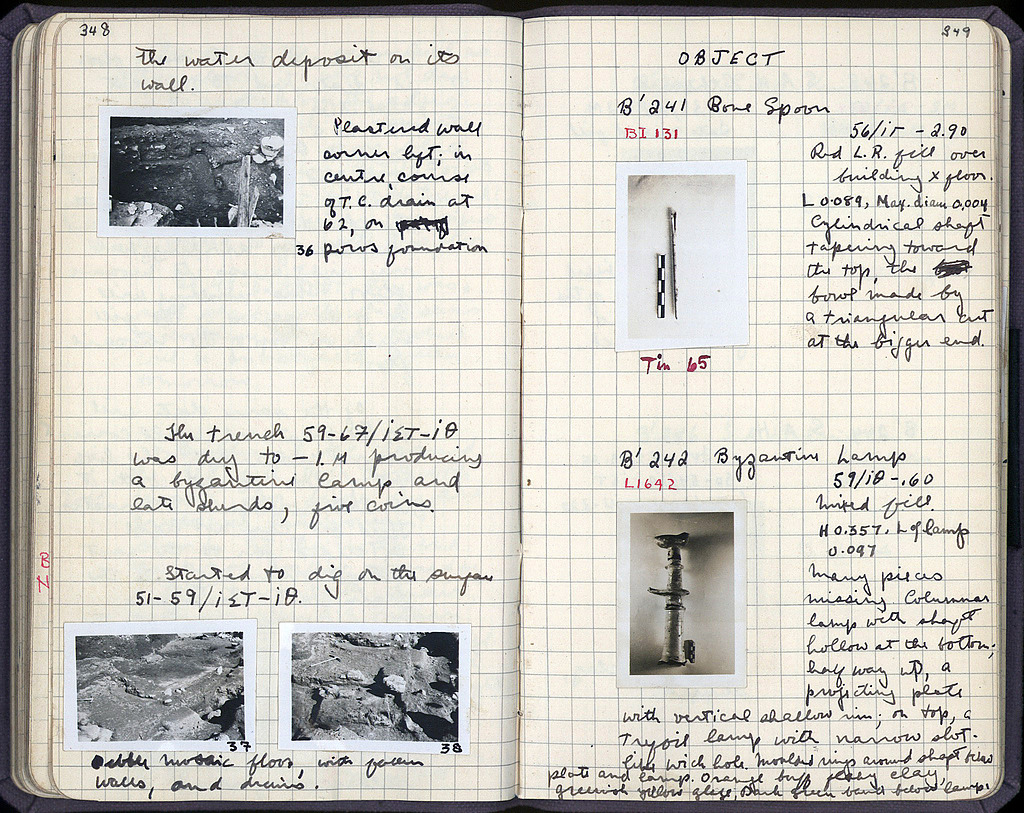 348
The water deposit on its
wall.
Plastered wall
corner left; in
centre, course
of T.C. drain at
62, on
36 poros foundation
The trench 59-67/iΣΤ-iθ
was dug to -1.M producing
a byzantine lamp and
late sherds, five coins.
BN
Started to dig on the surface
51-59/iΣΤ-iθ.
37
38
Pebble mosaic floor, with poros
walls, and drains.
349
OBJECT
B' 241 Bone Spoon
BI 131
56/ιΓ - 2.90
Red L.R. fill over
building x floor.
L 0.089, Max. diam 0.004
Cylindrical shaft
tapering toward
the top, the
bowl made by
a triangular cut
at the bigger end.
Tin 65
B' 242 Byzantine Lamp
L1642
59/iθ -.60
Mixed fill.
H 0.357. L of lamp
0.097
Many pieces
missing. Columnar
lamp with shaft
hollow at the bottom;
half way up, a
projecting plate
with vertical shallow rim; on top, a
Trefoil lamp with narrow slot-
like wick hole. Moulded rings around shaft below
plate and lamp. Orange buff clay,
greenish yellow glaze, Dark green band below lamp.